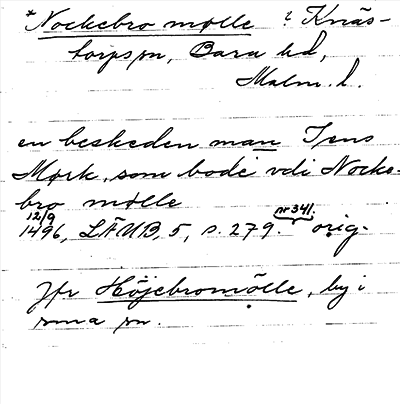 *Nockebro mølle i Knäs-
torps sn, Bara hd,
Malm. l.
en beskeden man Jens
Mørk, som bode vdi Nocke-
bro mølle
12/9 1496, LÄUB, 5, s. 279. nr 341. orig.
Jfr Höjebromölle, by i
sma sn.